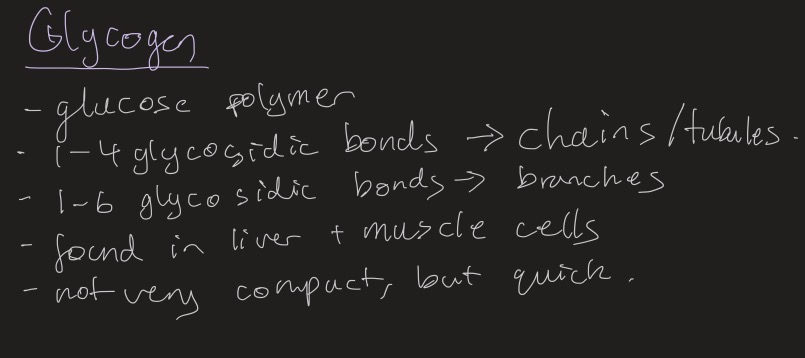 Glycogen
- glucose polymer
- 1-4 glycosidic bonds → chains/tubules.
- 1-6 glycosidic bonds → branches
- found in liver + muscle cells
- not very compact, but quick.